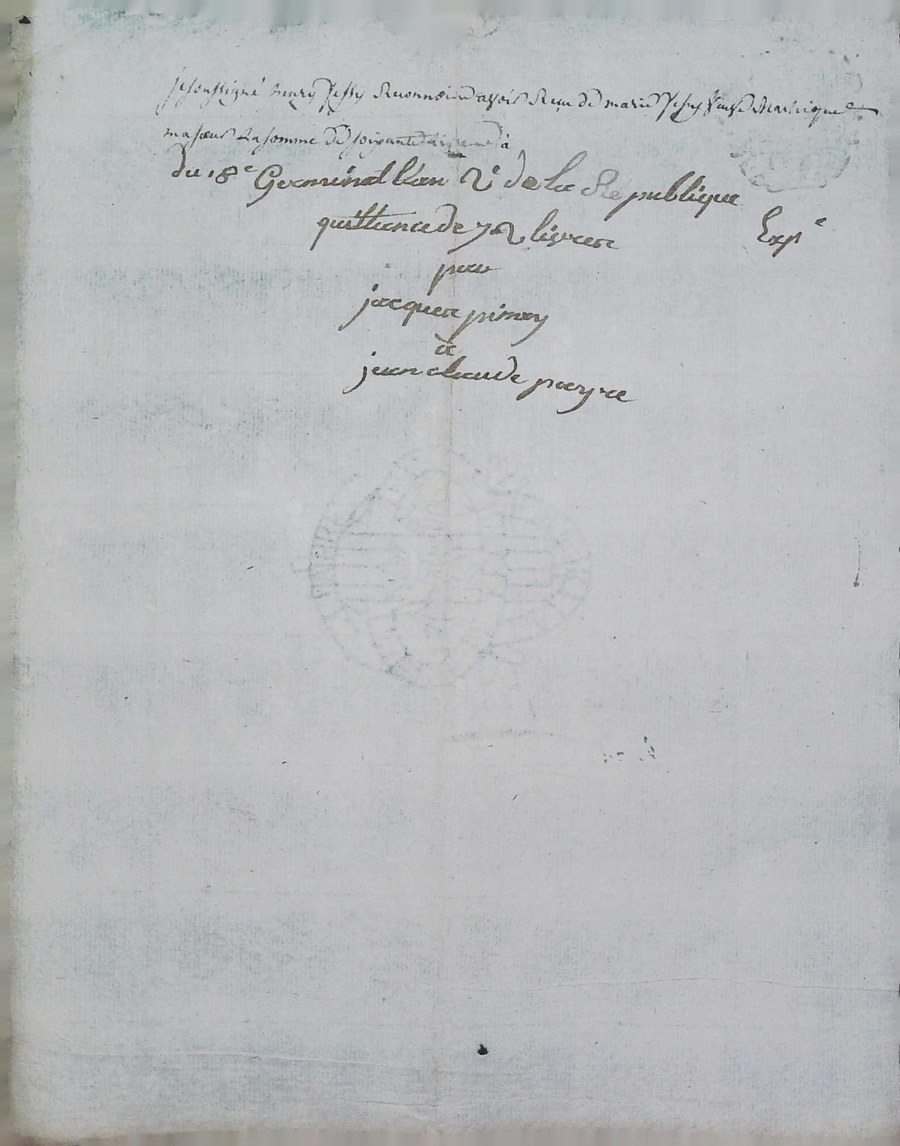 jesoussigné henry Jessy Reconnois avoir Reçu de marie Jessy
masoeur Lasomme de soixante à
du 18e Germinal l'an 2e de la République
quittance de 72 livres
par
jacques pimay
à
jean claude payre
Expe